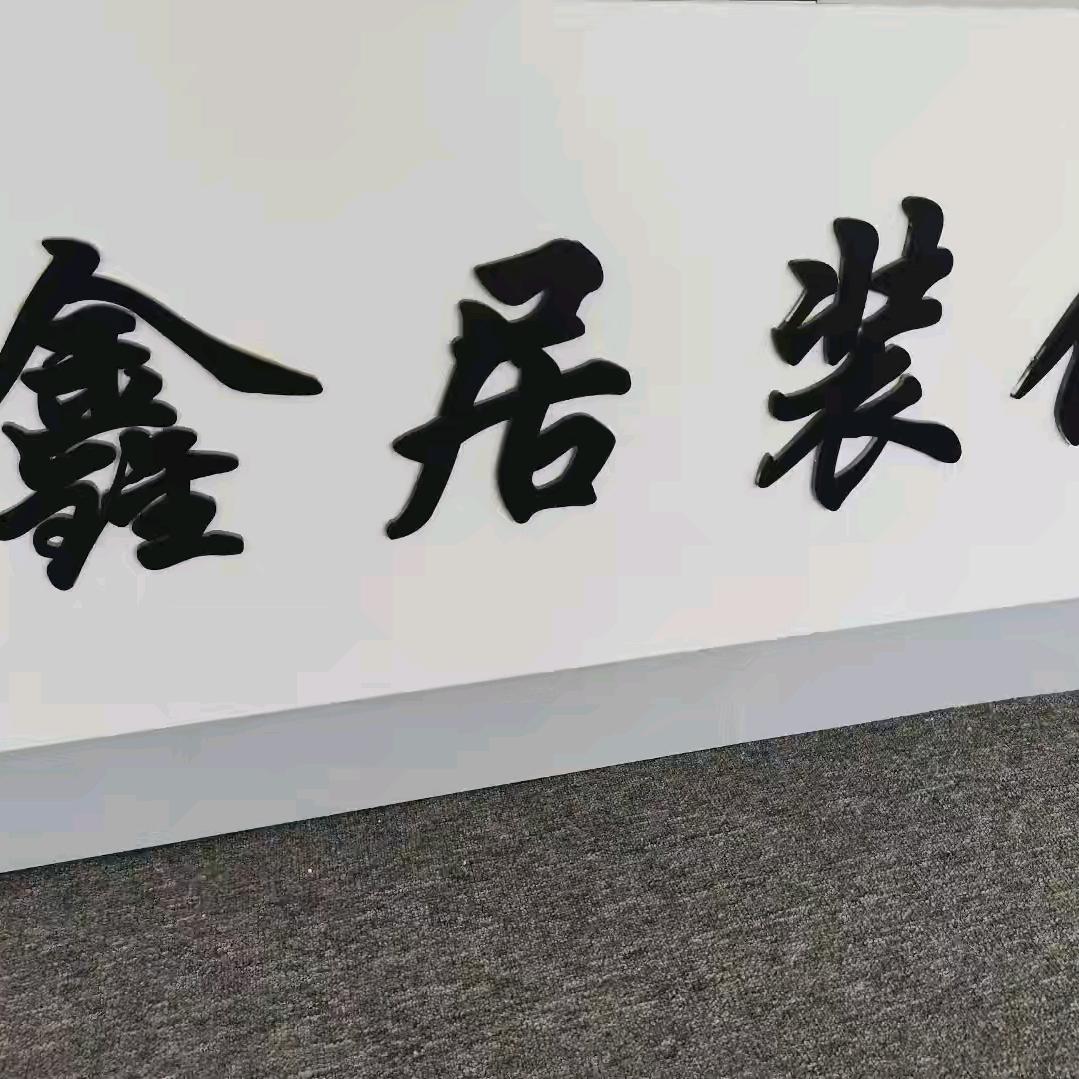 鑫居装